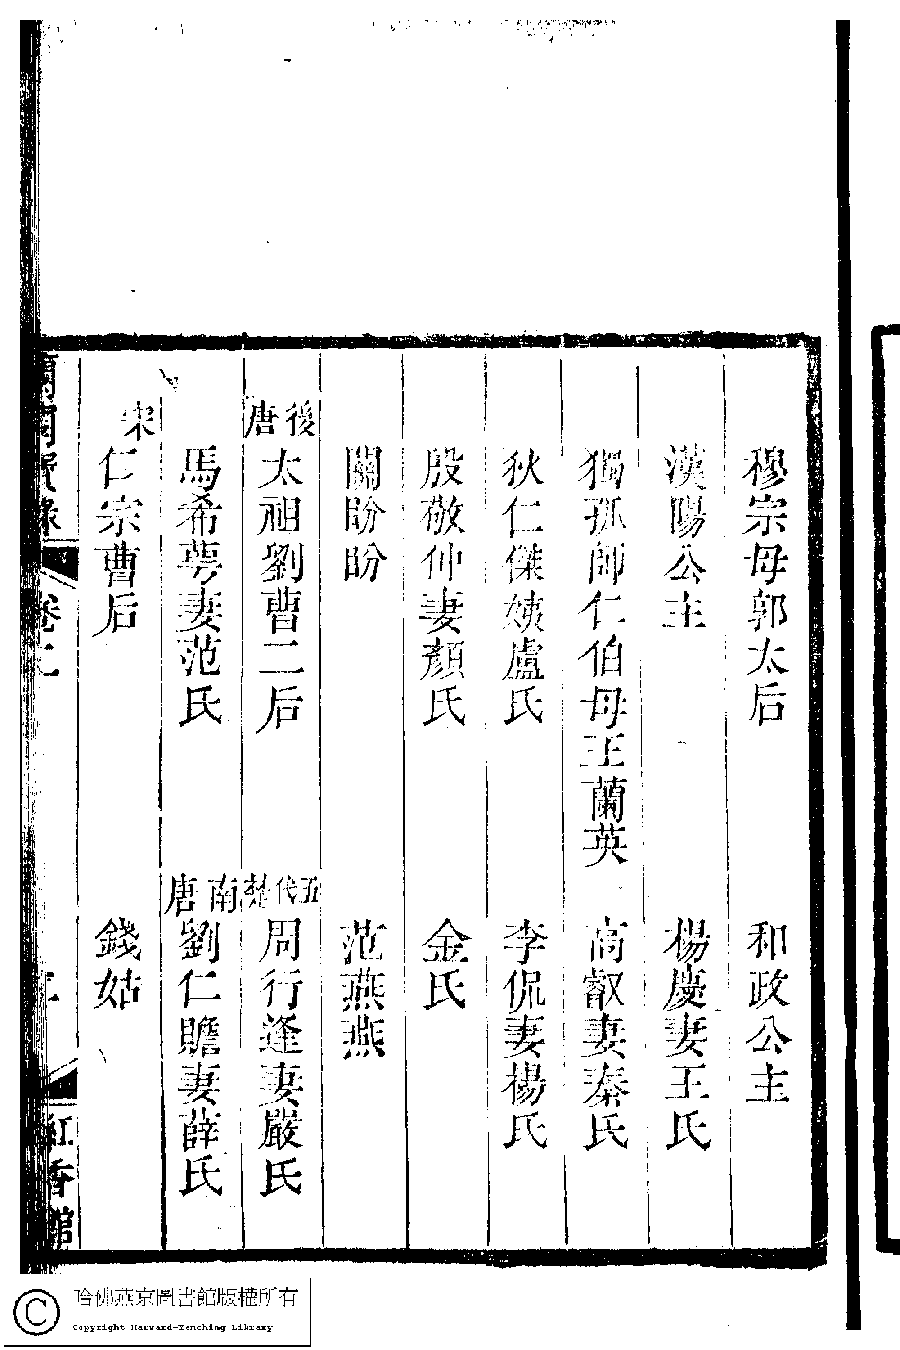 穆宗母郭太后　和政公主
漢陽公主　楊慶妻王氏
獨孤師仁伯母王蘭英　高叡妻秦氏
狄仁傑姨盧氏　李侃妻楊氏
殷敬仲妻顏氏　金氏
關盼盼　范燕燕
後唐　太祖劉曹二后　五代楚　周行逢妻嚴氏
馬希萼妻范氏　南唐　劉仁贍妻薛氏
宋　仁宗曹后　錢姑
蘭閨寶錄　卷　紅香館
哈佛燕京圖書館版權所有
Copyright Harvard-Yenching Library